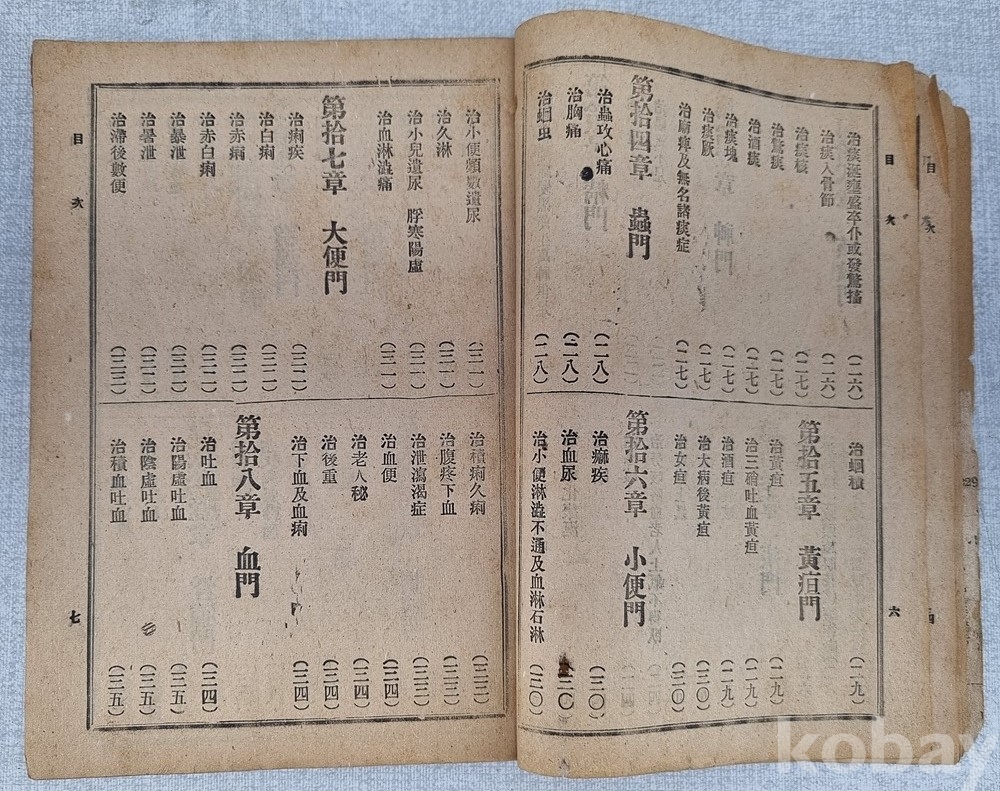 目次
治痰涎壅盛卒仆或發驚搐 (二六)
治痰入骨節 (二六)
治痰核 (二七)
治驚痰 (二七)
治酒痰 (二七)
治痰塊 (二七)
治痰厥 (二七)
治痲痺及無名諸痰症 (二七)
第拾四章 蟲門
治蟲攻心痛 (二八)
治胸痛 (二八)
治蛔虫 (二八)
治蛔積 (二九)
第拾五章 黃疸門
治黃疸 (二九)
治三硝吐血黃疸 (二九)
治酒疸 (二九)
治大病後黃疸 (三〇)
治女疸 (三〇)
第拾六章 小便門
治癩疾 (三〇)
治血尿 (三〇)
治小便淋澁不通及血淋石淋 (三〇)
六
目次
治小便頻數遺尿 (三一)
治久淋 (三一)
治小兒遺尿 脬寒陽虛 (三一)
治血淋澁痛 (三一)
第拾七章 大便門
治痢疾 (三二)
治白痢 (三二)
治赤痢 (三二)
治赤白痢 (三二)
治暴泄 (三二)
治暑泄 (三三)
治滯後數便 (三三)
治積痢久痢 (三三)
治腹疼下血 (三三)
治泄瀉渴症 (三三)
治血便 (三四)
治老人秘 (三四)
治後重 (三四)
治下血及血痢 (三四)
第拾八章 血門
治吐血 (三四)
治陽虛吐血 (三五)
治陰虛吐血 (三五)
治積血吐血 (三五)
七
目次
29
kobay